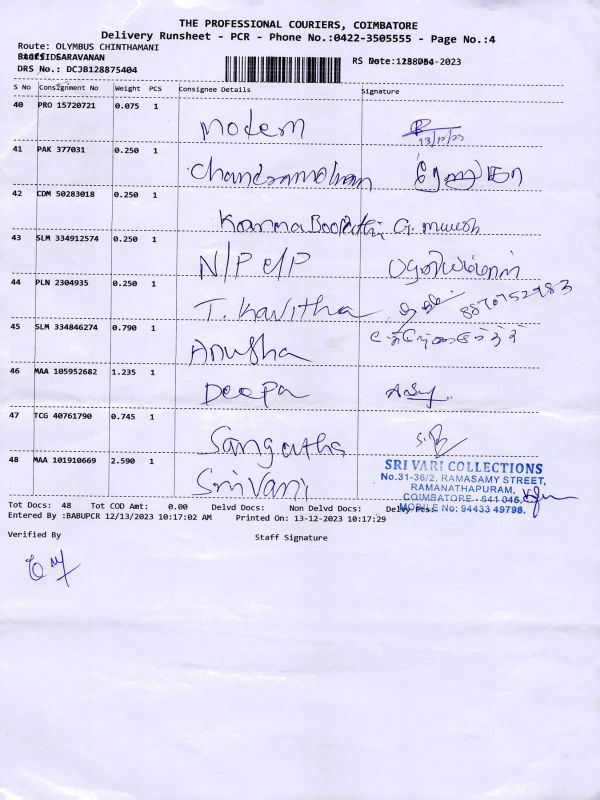 THE PROFESSIONAL COURIERS, COIMBATORE
Delivery Runsheet - PCR - Phone No.:0422-3505555 - Page No.:4
Route: OLYMBUS CHINTHAMANI
SARAVANAN
DRS No.: DCJB128875404
S No Consignment No Weight PCS Consignee Details Signature
40 PRO 15720721 0.075 1 Modern
41 PAK 377031 0.250 1 Chandramohan
42 CDM 50283018 0.250 1 KarmaBoopathi
43 SLM 334912574 0.250 1 N/P e/P
44 PLN 2304935 0.250 1 T. Kavitha
45 SLM 334846274 0.790 1 Anusha
46 MAA 105952682 1.235 1 Deepa
47 TCG 40761790 0.745 1 Sangatha
48 MAA 101910669 2.590 1 Srivari
SRI VARI COLLECTIONS
No.31-36/2, RAMASAMY STREET,
RAMANATHAPURAM,
COIMBATORE - 641 045.
MOBILE No: 94433 49798.
Tot Docs: 48 Tot COD Amt: 0.00 Delvd Docs: Non Delvd Docs: Delvy Pcs:
Entered By :BABUPCR 12/13/2023 10:17:02 AM Printed On: 13-12-2023 10:17:29
Verified By Staff Signature